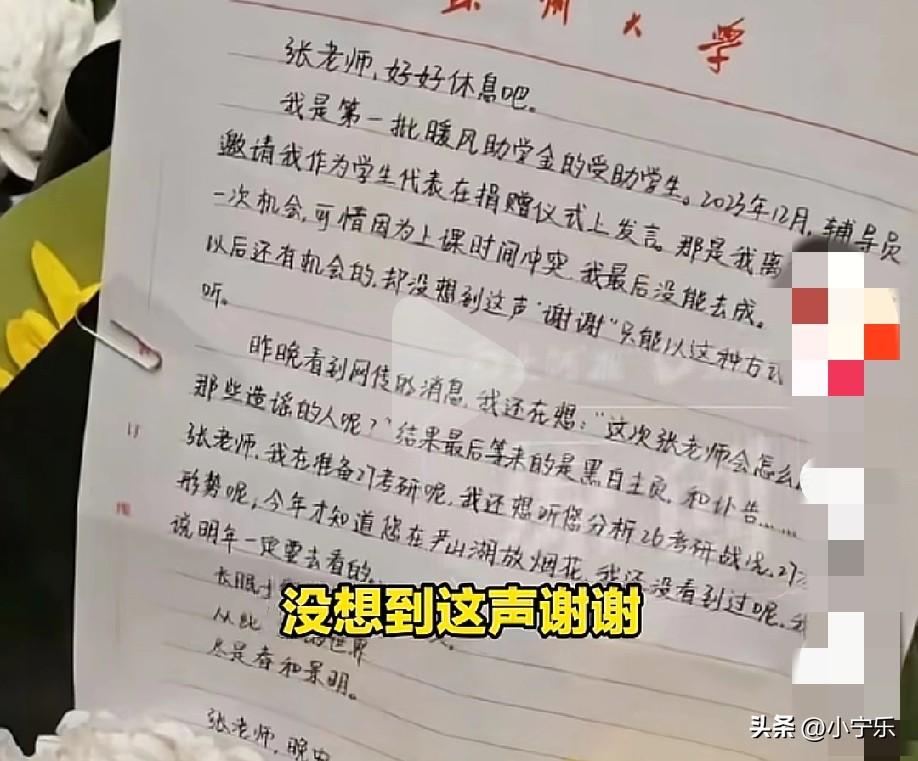 州大学
张老师,好好休息吧。
我是第一批暖风助学金的受助学生。2023年12月,辅导员
邀请我作为学生代表在捐赠仪式上发言。那是我离
一次机会,可惜因为上课时间冲突,我最后没能去成。
以后还有机会的,却没想到这声“谢谢”只能以这种方式
听。
昨晚看到网传的消息,我还在想:“这次张老师会怎么
那些造谣的人呢?”结果最后等来的是黑白主页,和讣告……
张老师,我在准备27考研呢,我还想听您分析26考研战况,27
形势呢,今年才知道您在尹山湖放烟花,我还没看到过呢,我
说明年一定要去看的。
长眠
从此 的世界
尽是春和景明。
张老师,晚
订
没想到这声谢谢
头条 @小宁乐